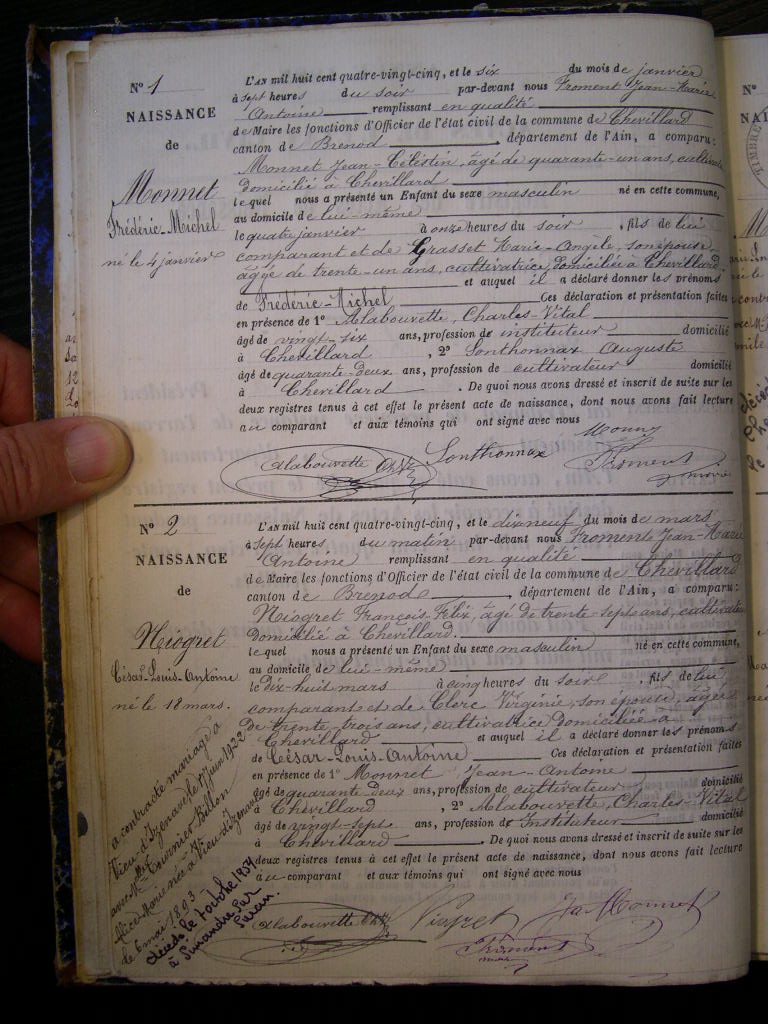 N° 1
NAISSANCE
de
Monnet
Frédéric-Michel
né le 4 janvier
L'AN mil huit cent quatre-vingt-cinq, et le six du mois de janvier
à sept heures du soir par-devant nous Froment Jean-Marie
Antoine remplissant en qualité
de Maire les fonctions d'Officier de l'état civil de la commune de Chevillard
canton de Brenod, département de l'Ain, a comparu:
Monnet Jean-Célestin, âgé de quarante-un ans, cultivateur
domicilié à Chevillard
lequel nous a présenté un Enfant du sexe masculin né en cette commune,
au domicile de lui-même
le quatre janvier à onze heures du soir, fils de lui
comparant et de Grasset Marie-Angèle, son épouse,
âgée de trente-un ans, cultivatrice, domiciliée à Chevillard.
et auquel il a déclaré donner les prénoms
de Frédéric-Michel, Ces déclaration et présentation faites
en présence de 1° Alabouvette, Charles-Vital
âgé de vingt-six ans, profession de instituteur domicilié
à Chevillard, 2° Sonthonnax Auguste
âgé de quarante-deux ans, profession de cultivateur domicilié
à Chevillard. De quoi nous avons dressé et inscrit de suite sur les
deux registres tenus à cet effet le présent acte de naissance, dont nous avons fait lecture
au comparant et aux témoins qui ont signé avec nous
Alabouvette Sonthonnax Froment
N° 2
NAISSANCE
de
Niogret
César-Louis-Antoine
né le 18 mars.
L'AN mil huit cent quatre-vingt-cinq, et le dix-neuf du mois de mars
à sept heures du matin par-devant nous Froment Jean-Marie
Antoine remplissant en qualité
de Maire les fonctions d'Officier de l'état civil de la commune de Chevillard
canton de Brenod, département de l'Ain, a comparu:
Niogret François-Félix, âgé de trente-sept ans, cultivateur
domicilié à Chevillard.
lequel nous a présenté un Enfant du sexe masculin né en cette commune,
au domicile de lui-même
le dix-huit mars à cinq heures du soir, fils de lui
comparant et de Clerc Virginie, son épouse, âgée
de trente-trois ans, cultivatrice domiciliée à
Chevillard et auquel il a déclaré donner les prénoms
de César-Louis-Antoine Ces déclaration et présentation faites
en présence de 1° Monnet Jean-Antoine
âgé de quarante-deux ans, profession de cultivateur domicilié
à Chevillard, 2° Alabouvette, Charles-Vital
âgé de vingt-sept ans, profession de Instituteur domicilié
à Chevillard. De quoi nous avons dressé et inscrit de suite sur les
deux registres tenus à cet effet le présent acte de naissance, dont nous avons fait lecture
au comparant et aux témoins qui ont signé avec nous
a contracté mariage à
Vieu-d'Izenave le 17 juin 1922
avec Tournier-Billon
Alice-Marie née à Vieu-d'Izenave
le 6 mai 1893
décédé le 7 octobre 1954
à Simandre sur
Suran.
Alabouvette Niogret Monnet
Froment